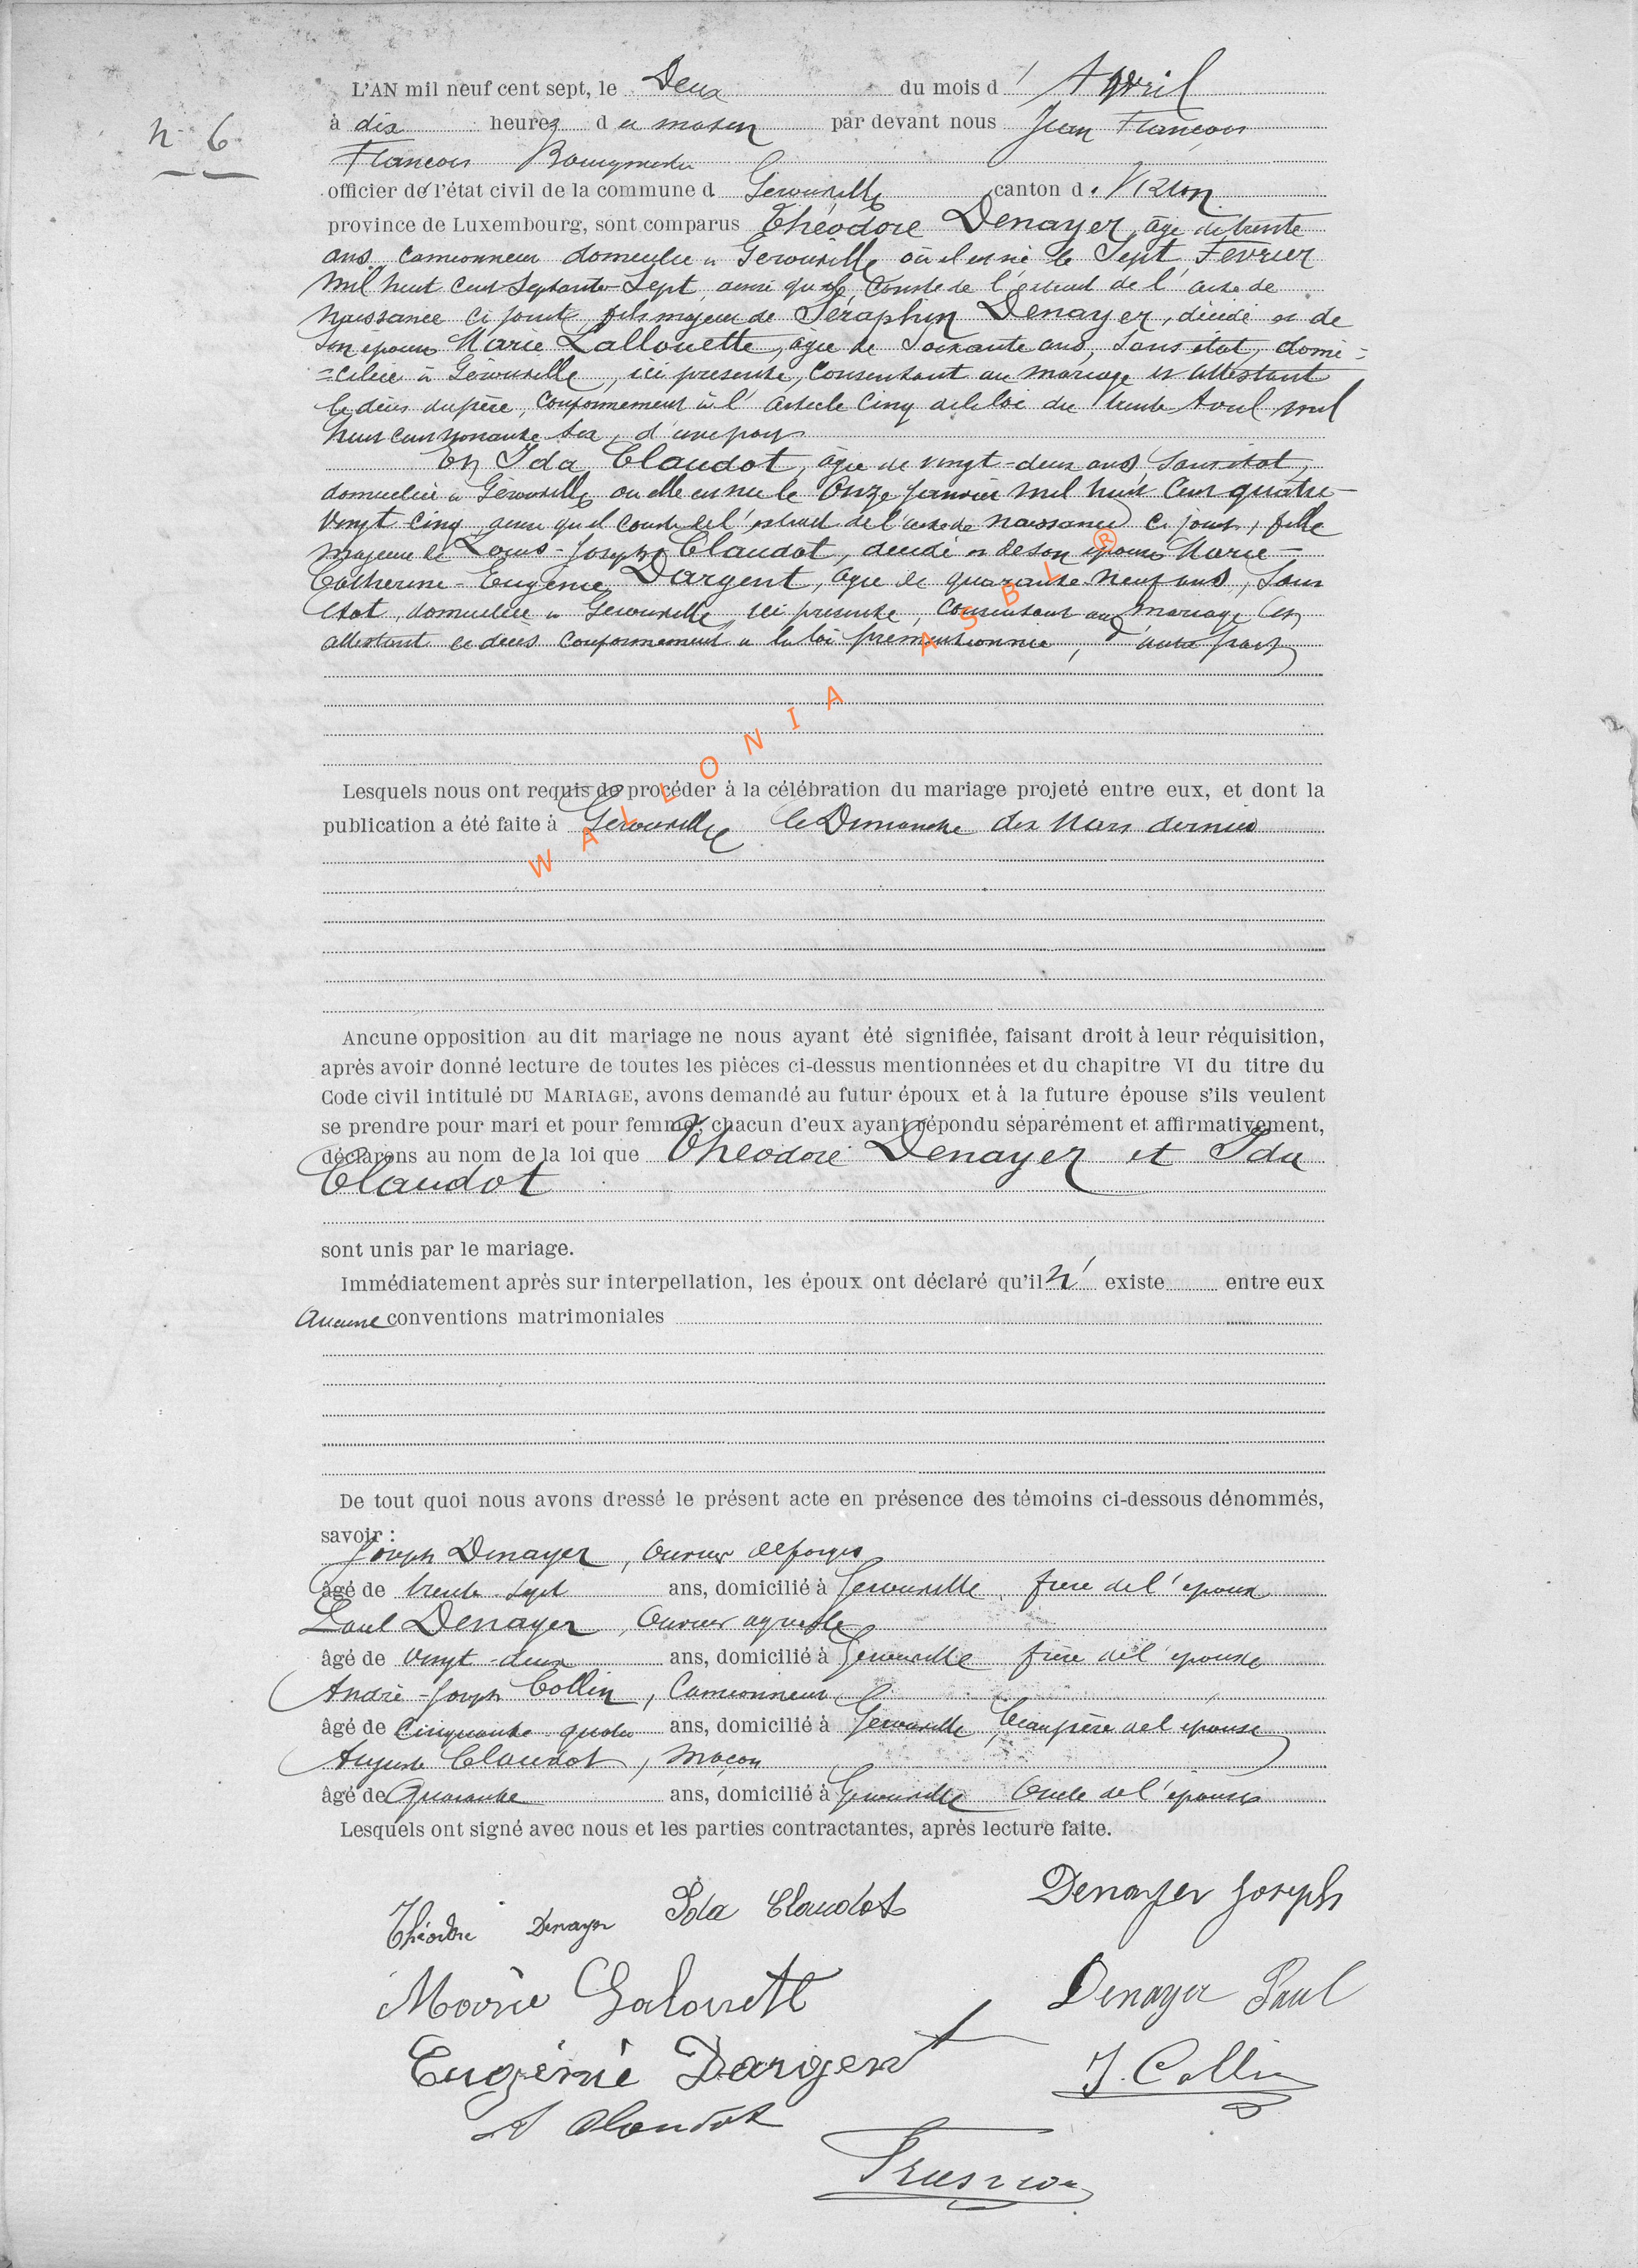 n° 6
L'AN mil neuf cent sept, le Deux du mois d' Avril
à dix heures du matin par devant nous Jean François
François
officier de l'état civil de la commune d Gérouville canton d. Virton
province de Luxembourg, sont comparus Théodore Denayer, âgé de trente
ans camionneur domicilié à Gérouville où il est né le Sept Fevrier
mil huit cent septante-sept, ainsi qu'il conste de l'extrait de l'acte de
naissance ci joint, fils majeur de Séraphin Denayer, décédé et de
son épouse Marie Lallouette, âgée de soixante ans, sans état, domi=
=ciliée à Gérouville, ici présente, consentant au mariage et attestant
le décès du père, conformément à l'article cinq de la loi du trente Avril mil
huit cent nonante six, d'une part
Et Ida Claudot, âgée de vingt-deux ans, sans état,
domiciliée à Gérouville où elle est née le onze janvier mil huit cent quatre-
vingt-cinq, ainsi qu'il conste de l'extrait de l'acte de naissance ci joint, fille
majeure de Louis-Joseph Claudot, décédé et de son épouse Marie-
Catherine-Eugénie Dargent, âgée de quarante neuf ans, sans
état, domiciliée à Gérouville, ici présente, consentant au mariage et
attestant le décès conformément à la loi prémentionnée, d'autre part
Lesquels nous ont requis de procéder à la célébration du mariage projeté entre eux, et dont la
publication a été faite à Gérouville le Dimanche dix Mars dernier
WALLONIA ASBL ®
Aucune opposition au dit mariage ne nous ayant été signifiée, faisant droit à leur réquisition,
après avoir donné lecture de toutes les pièces ci-dessus mentionnées et du chapitre VI du titre du
Code civil intitulé DU MARIAGE, avons demandé au futur époux et à la future épouse s'ils veulent
se prendre pour mari et pour femme; chacun d'eux ayant répondu séparément et affirmativement,
déclarons au nom de la loi que Théodore Denayer et Ida
Claudot
sont unis par le mariage.
Immédiatement après sur interpellation, les époux ont déclaré qu'il n' existe entre eux
aucune conventions matrimoniales
De tout quoi nous avons dressé le présent acte en présence des témoins ci-dessous dénommés,
savoir :
Joseph Denayer, ouvrier de forges
âgé de trente-sept ans, domicilié à Gérouville, frère de l'époux
Paul Denayer, ouvrier agricole
âgé de vingt-deux ans, domicilié à Gérouville frère de l'époux
André-Joseph Collin, Camionneur
âgé de cinquante quatre ans, domicilié à Gérouville, beau père de l'épouse
Auguste Claudot, maçon
âgé de quarante ans, domicilié à Gérouville oncle de l'épouse
Lesquels ont signé avec nous et les parties contractantes, après lecture faite.
Théodore Denayer Ida Claudot Denayer Joseph
Marie Lalouette Denayer Paul
Eugénie Dargent J. Collin
A Claudot